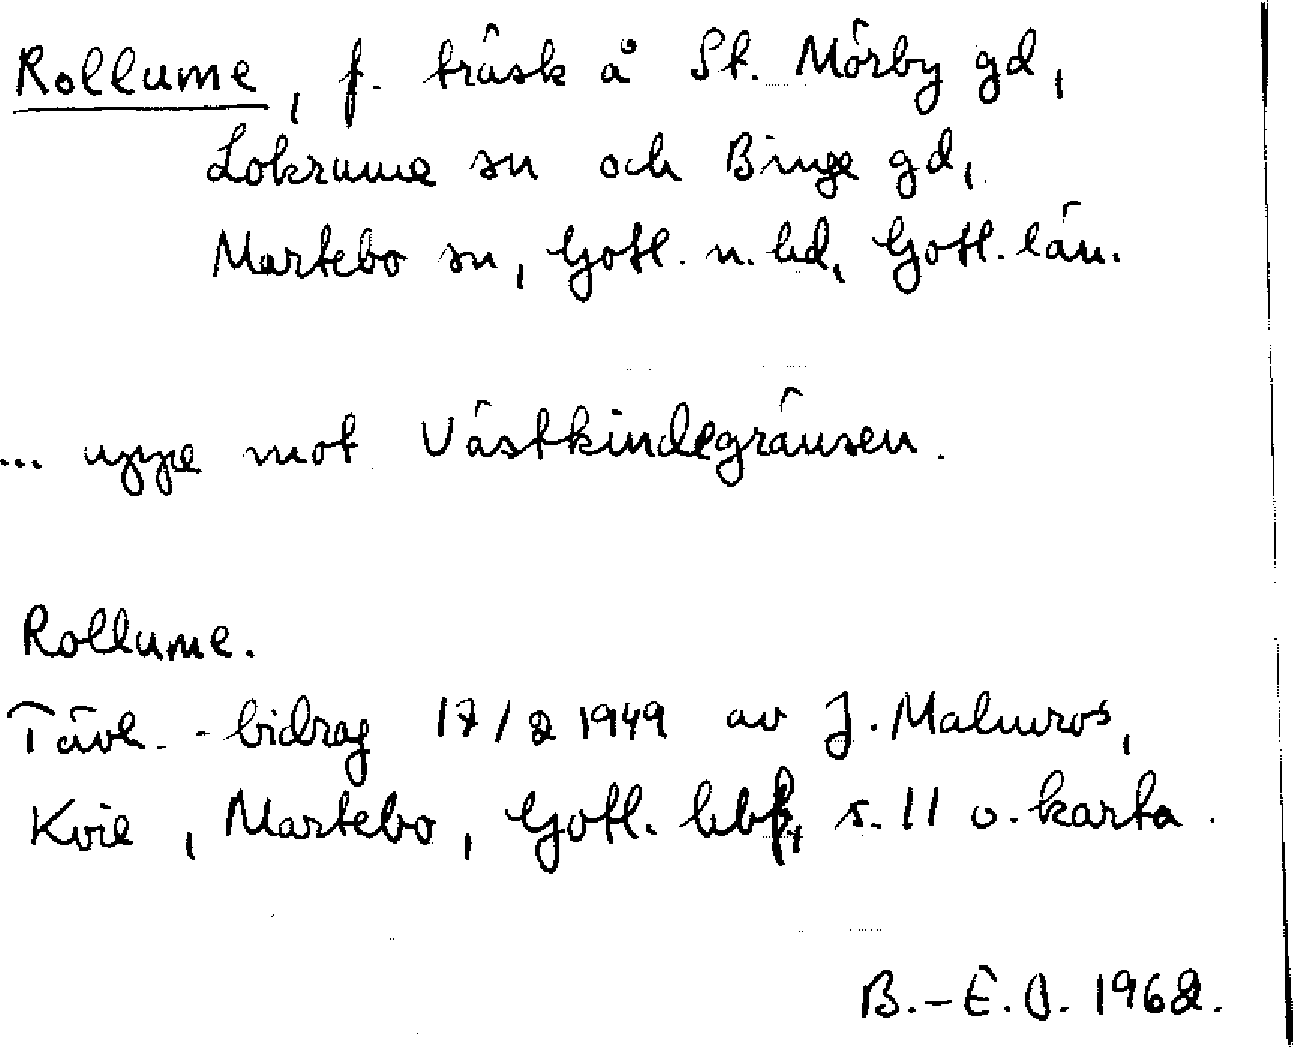 Rollume, f. träsk å St. Mörby gd,
Lokrume sn och Binge gd,
Martebo sn, Gotl. n. hd, Gotl. län.
... uppe mot Västkindegränsen.
Rollume.
Tävl.-bidrag 17/2 1949 av J. Malmros,
Kvie, Martebo, Gotl. hbf, s. 11 o. karta.
B.-E. O. 1962.